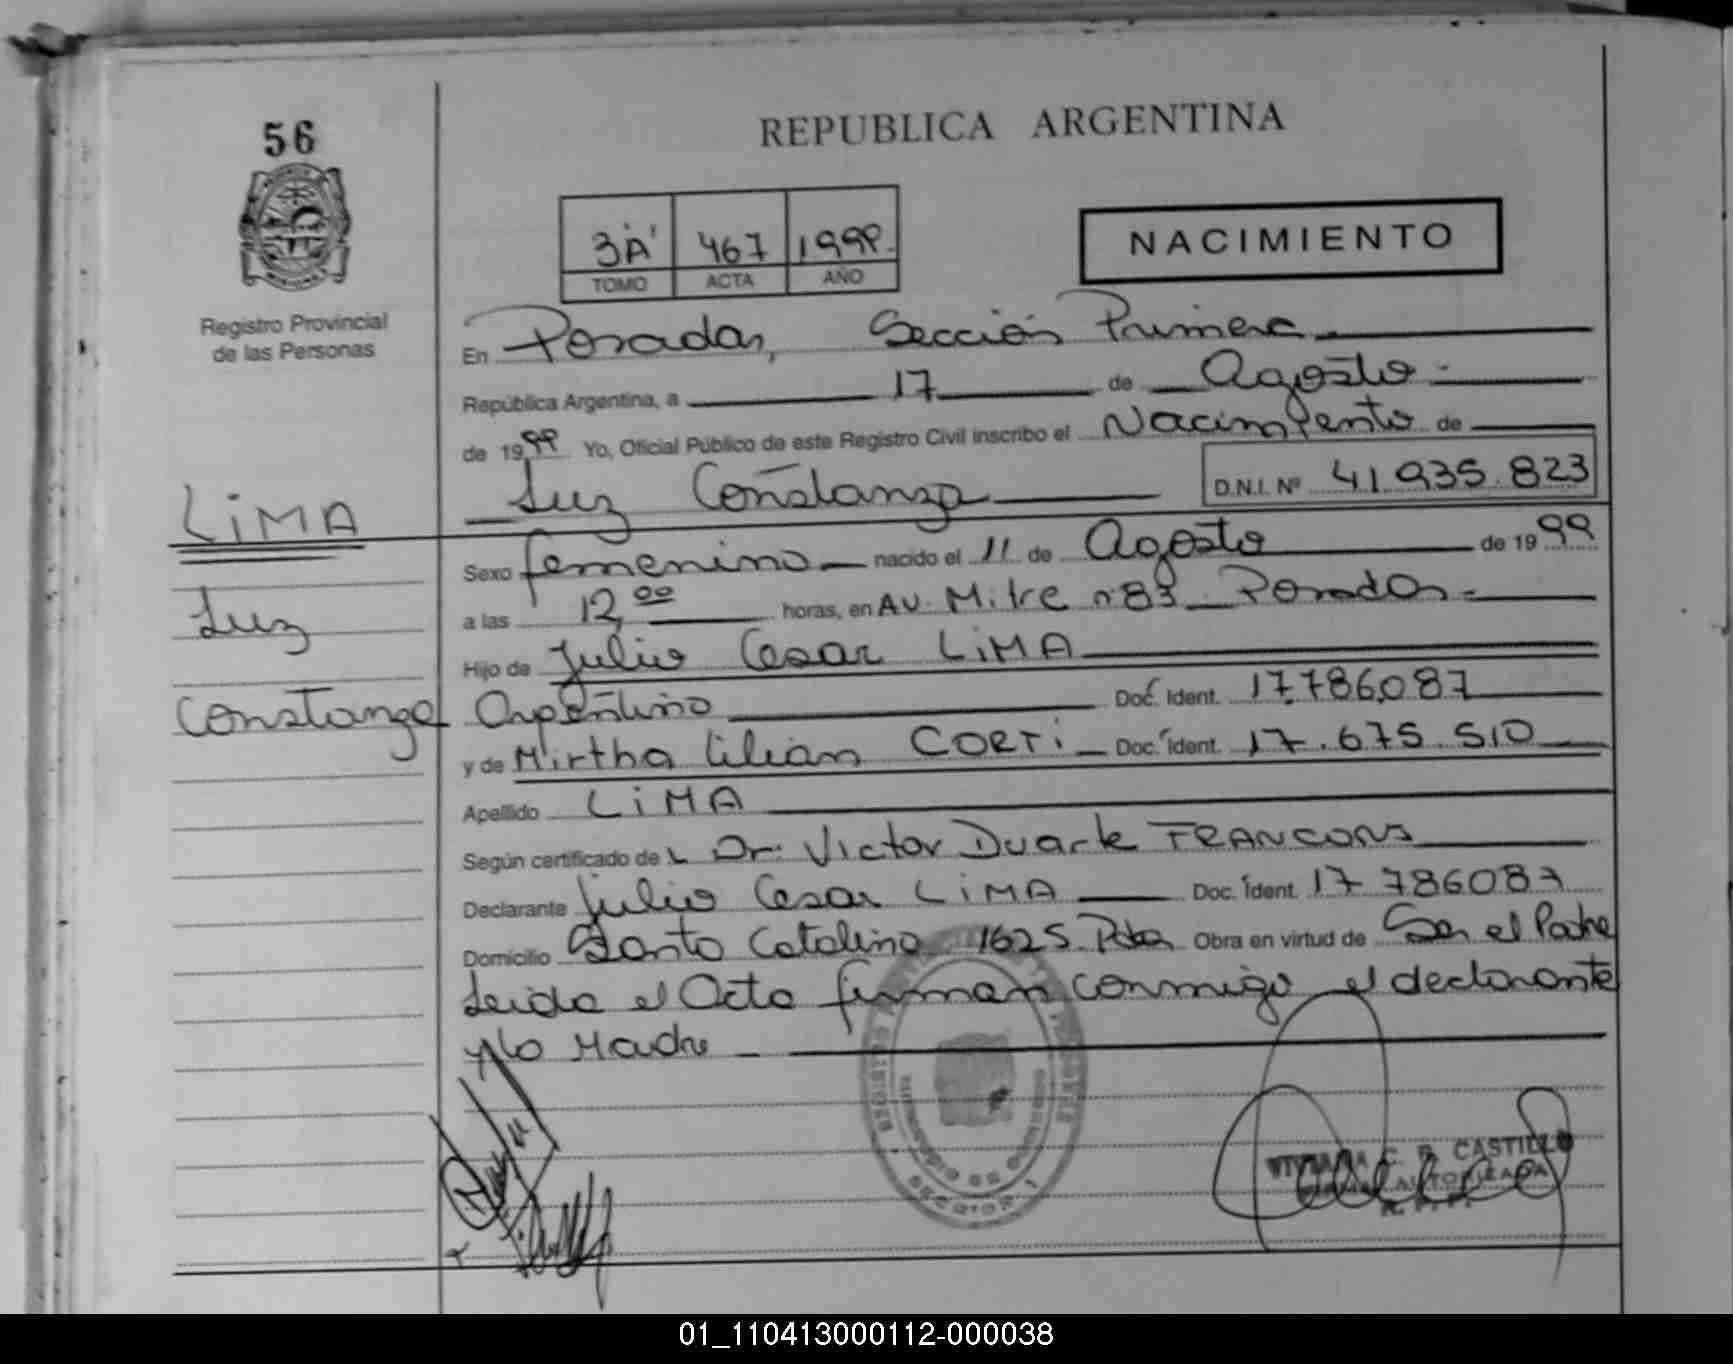 56
REPUBLICA ARGENTINA
3A' 467 1999.
TOMO ACTA AÑO
NACIMIENTO
Registro Provincial
de las Personas
En Posadas, Sección Primera
República Argentina, a 17 de Agosto
de 1999 Yo, Oficial Público de este Registro Civil inscribo el Nacimiento de
Luz Constanza D.N.I. Nº 41.935.823
LiMA
Sexo femenino nacido el 11 de Agosto de 1999
a las 12,00 horas, en AV. Mitre nº 83 Posadas
Luz
Hijo de Julio Cesar LiMA
Constanza
Argentino Doc. Ident. 17.786.087
y de Mirtha Lilian CORTi Doc. Ident. 17.675.510
Apellido LiMA
Según certificado de L Dr. Victor Duarte FRANCONS
Declarante Julio Cesar LiMA Doc. Ident. 17 786087
Domicilio Santa Catalina 1625 Pdas Obra en virtud de Ser el Padre
Leida el Acta firman conmigo el declarante
y la Madre
C. R. CASTILLO
AUTORIZADA
01_110413000112-000038